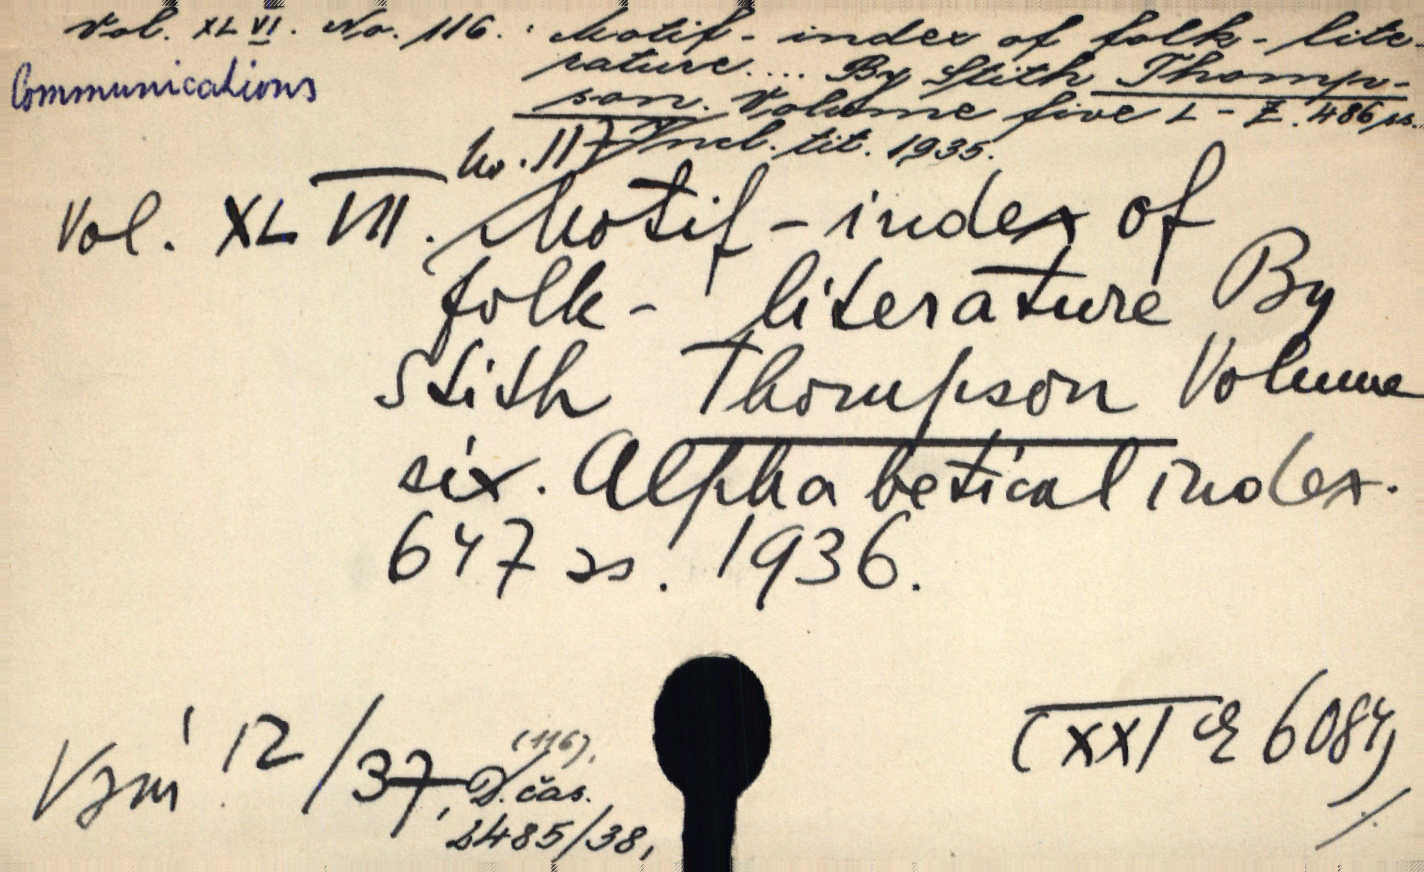 Vol. XLVI. No. 116. : Motif-index of folk-lite-
Communications
rature.... By Stith Thomp-
son. Volume five L-Z. 486 ss.
No. 117 Incl. tit. 1935.
Vol. XLVII. Motif-index of
folk-literature By
Stith Thompson Volume
six. Alphabetical index.
647 ss. 1936.
(XXI E 6084)
12/37, (116).
D. čas.
2485/38,